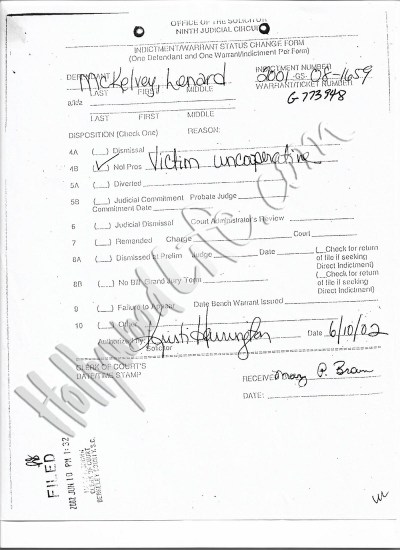 OFFICE OF THE SOLICITOR
NINTH JUDICIAL CIRCUIT
INDICTMENT/WARRANT STATUS CHANGE FORM
(One Defendant and One Warrant/Indictment Per Form)
DEFENDANT McKelvey, Lenard INDICTMENT NUMBER
2001-GS-08-1659
LAST FIRST MIDDLE WARRANT/TICKET NUMBER
a/k/a G 773348
LAST FIRST MIDDLE
DISPOSITION (Check One) REASON:
4A (__) Dismissal
4B (✓) Nol Pros Victim uncooperative
5A (__) Diverted
5B (__) Judicial Commitment Probate Judge
Commitment Date
6 (__) Judicial Dismissal Court Administrator's Review
7 (__) Remanded Charge Court
8A (__) Dismissed at Prelim Judge Date (__Check for return
of file if seeking
Direct Indictment)
8B (__) No Bill Grand Jury Term (__Check for return
of file if seeking
Direct Indictment)
9 (__) Failure to Appear Date Bench Warrant Issued
10 (__) Other
Authorized by Kristi Harrington Date 6/10/02
Solicitor
CLERK OF COURT'S
DATE/TIME STAMP
RECEIVED Mary P. Brown
DATE:
FILED
2002 JUN 10 PM 1:32
BERKELEY COUNTY, S.C.
HollywoodLife.com